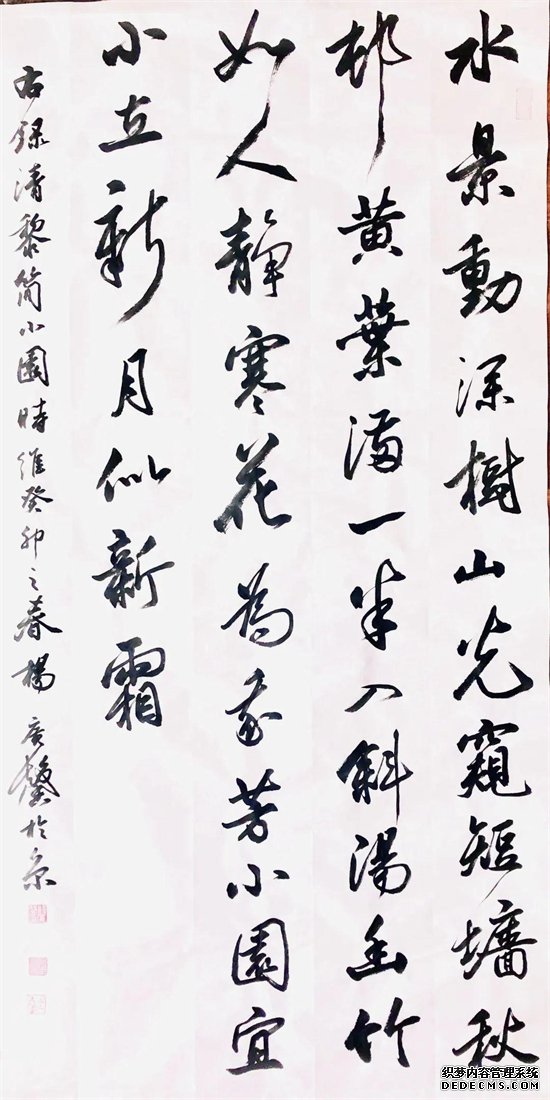 水景動深樹山光窺短墻秋
邨黃葉滿一半入斜陽幽竹
如人靜寒花為我芳小園宜
小立新月似新霜
右錄清黎簡小園時維癸卯之春楊廣馨於京
织梦内容管理系统
DEDECMS.COM